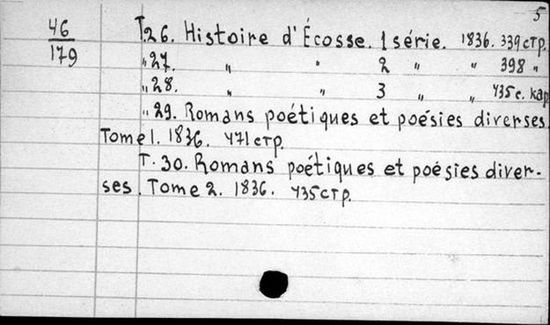 5
46
179
T.26. Histoire d'Écosse. 1 série. 1836. 339 стр.
„ 27. „ „ 2 „ „ 398 „
„ 28. „ „ 3 „ „ 435 с. кар
„ 29. Romans poétiques et poésies diverses
Tome 1. 1836. 471 стр.
T. 30. Romans poétiques et poésies diver-
ses. Tome 2. 1836. 435 стр.